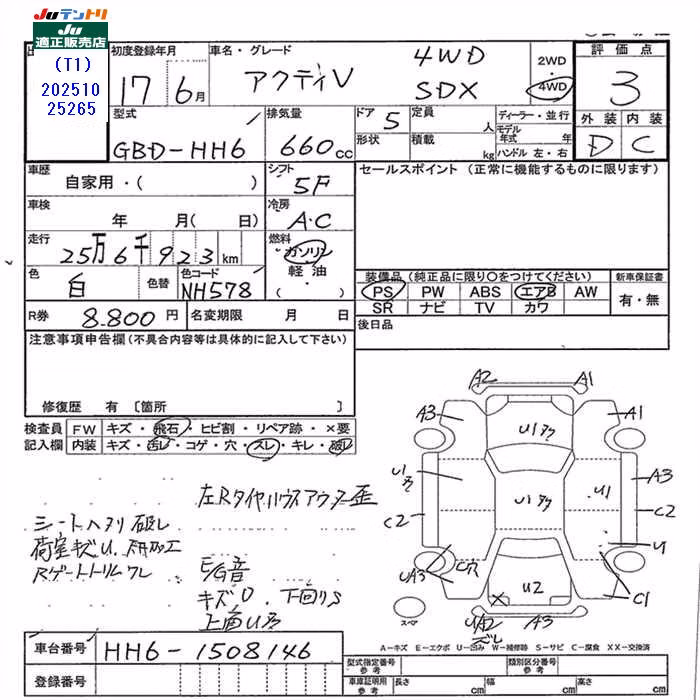 JUテントリ
JU
適正販売店
(T1)
202510
25265
初度登録年月
17年 6月
車名・グレード
アクティV
4WD
SDX
2WD
4WD
評価点
3
外装 内装
D C
型式
GBD-HH6
排気量
660cc
ドア
5
定員
人
形状
積載
kg
ディーラー・並行
モデル年式 年
ハンドル 左・右
車歴
自家用・( )
シフト
5F
セールスポイント (正常に機能するものに限ります)
車検
年 月(日)
冷房
A・C
走行
25万6千923km
燃料
ガソリン
軽油・
( )
色
白
色替
色コード
NH578
装備品 (純正品に限り○をつけてください)
PS PW ABS エアB AW
SR ナビ TV カワ
新車保証書
有・無
R券
8,800円
名変期限 月 日
後日品
注意事項申告欄(不具合内容等は具体的に記入して下さい)
修復歴 有 〔箇所 〕
検査員 FW キズ・飛石・ヒビ割・リペア跡・×要
記入欄 内装 キズ・汚レ・コゲ・穴・スレ・キレ・破レ
A2 A1
A3 A1
U1
U1 U1 U1 A3
C2 C2
U
UA3
U2
C1
A3
スペア
左Rタイヤハウスアウター歪
シートヘタリ 破レ
荷室キズU、
Rゲートトリムワレ
E/G音
キズU 下回りS
A-キズ E-エクボ U-凹み W-補修跡 S-サビ C-腐食 XX-交換済
車台番号
HH6-1508146
登録番号
型式指定番号 参考
類別区分番号 参考
車庫証明用 参考
長さ cm 幅 cm 高さ cm